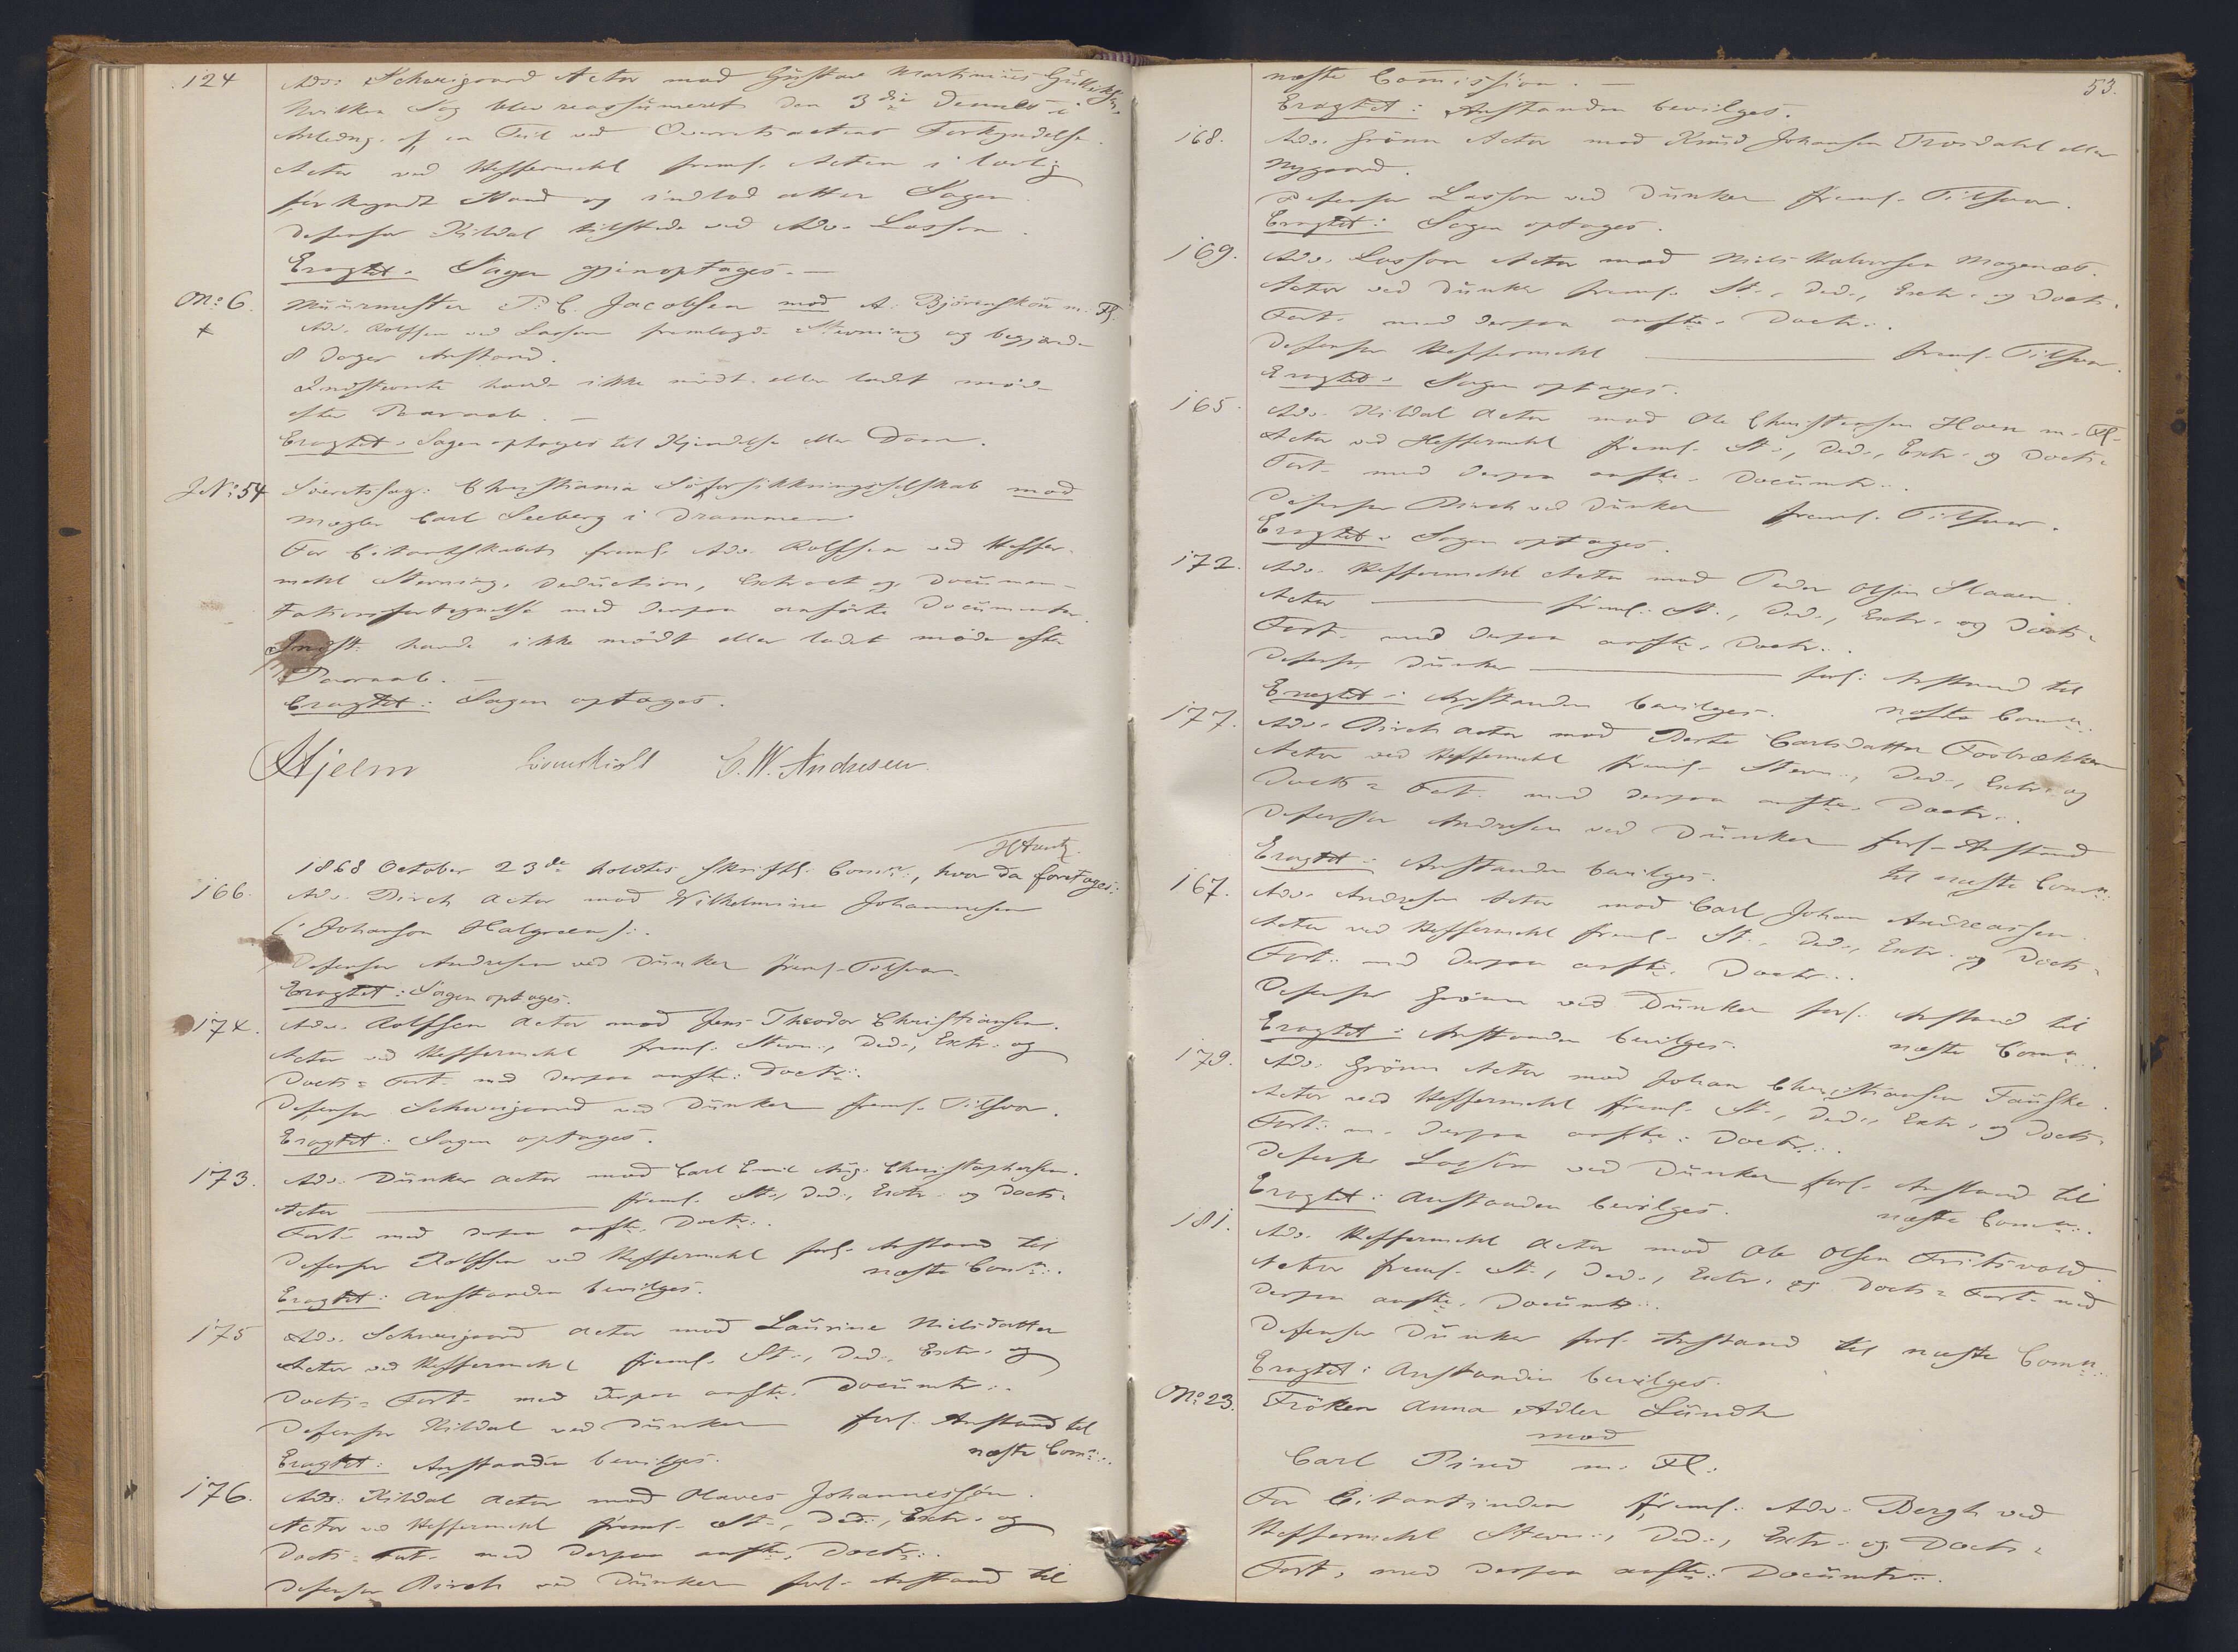 124 Adv: Schweigaard Actor mod Gustav Martinius Gulliksen,
hvilken Sag blev reassumeret den 3die dennes i
Anledng. af en Feil ved Overretsactens Forkyndelse.
Actor ved Heffermehl freml. Acten i lovlig
forkyndt Stand og indlod atter Sagen.
Defensor Kildal tilstede ved Adv. Lasson.
Eragtet: Sagen gjenoptages. —
No: 6. Muurmester P. C. Jacobsen mod A. Björnskou m. Fl.
+ Adv. Rolffsen ved Lasson fremlagde Stevning og begjærede
8 Dages Anstand.
Indstevnte havde ikke mödt eller ladet möde
efter Paaraab. —
Eragtet: Sagen optages til Kjendelse eller Dom.
J.No: 54 Söeretssag: Christiania Söforsikkringsselskab mod
Mægler Carl Seeberg i Drammen
For Citantskabets freml. Adv. Rolffsen ved Heffer-
mehl Stevning, Deduction, Extract og Documen-
tationsfortegnelse med derpaa anförte Documenter.
Indst: havde ikke mödt eller ladet möde efter
Paaraab. —
Eragtet: Sagen optages.
Hjelm Lövenskiold C. W. Andresen
1868 October 23de holdtes skriftl. Comn:, hvor da foretoges:
166. Adv. Birch Actor mod Wilhelmine Johannesen
(: Johanson Halgreen):.
Defensor Andresen ved Dunker freml. Tilsvar.
Eragtet: Sagen optages.
174. Adv. Rolffsen Actor mod Jens Theodor Christiansen.
Actor ved Heffermehl freml: Stevn:, Ded:, Extr: og
Docts= Fort. med derpaa anfte: Doctr:.
Defensor Schweigaard ved Dunker freml. Tilsvar.
Eragtet: Sagen optages.
173. Adv. Dunker Actor mod Carl Emil Aug. Christophersen.
Actor ——— freml. St:, Ded:, Extr: og Docts=
Fort= med derpaa anfte. Doctr:.
Defensor Rolffsen ved Heffermehl forl. Anstand til
næste Comn:.
Eragtet: Anstanden bevilges.
175 Adv. Schweigaard Actor mod Laurine Nielsdatter
Actor ved Heffermehl freml. St:, Ded:, Extr. og
Docts= Fort. med derpaa anfte. Documtr:.
Defensor Kildal ved Dunker forl. Anstand til
næste Comn:.
Eragtet: Anstanden bevilges.
176. Adv. Kildal Actor mod Olaves Johannessön.
Actor ved Heffermehl freml. St:, Ded:, Extr. og
Docts= Fort. med derpaa anfte. Doctr:.
Defensor Birch ved Dunker forl. Anstand til
53.
næste Commission. —
Eragtet: Anstanden bevilges.
168. Adv. Grönn Actor mod Knud Johansen Trosdahl eller
Nygaard.
Defensor Lasson ved Dunker freml. Tilsvar.
Eragtet: Sagen optages.
169. Adv. Lasson Actor mod Niels Halvorsen
Actor ved Dunker freml. St:, Ded:, Extr. og Docts=
Fort. med derpaa anfte. Doctr:.
Defensor Heffermehl ——— freml. Tilsvar.
Eragtet: Sagen optages.
165. Adv. Kildal Actor mod Ole Christensen Hoen m. Fl.
Actor ved Heffermehl freml. St:, Ded:, Extr. og Docts=
Fort. med derpaa anfte. Documtr:.
Defensor Birch ved Dunker freml. Tilsvar.
Eragtet: Sagen optages.
172. Adv. Heffermehl Actor mod Peder Olsen Slaaen.
Actor ——— freml: St:, Ded:, Extr. og Docts=
Fort. med derpaa anfte. Doctr:.
Defensor Dunker ——— forl: Anstand til
næste Comn:.
Eragtet: Anstanden bevilges.
177. Adv. Birch Actor mod Berte Carlsdatter Fosbrækken
Actor ved Heffermehl freml. Stevn:, Ded:, Extr. og
Docts= Fort. med derpaa anfte. Doctr:.
Defensor Andresen ved Dunker forl. Anstand
til næste Comn:.
Eragtet: Anstanden bevilges.
167. Adv. Andresen Actor mod Carl Johan Andreassen.
Actor ved Heffermehl freml. St:, Ded:, Extr. og Docts=
Fort: med derpaa anfte. Doctr:.
Defensor Grönn ved Dunker forl. Anstand til
næste Comn:.
Eragtet: Anstanden bevilges.
179. Adv. Grönn Actor mod Johan Christiansen Fauske.
Actor ved Heffermehl freml. St:, Ded:, Extr. og Docts=
Fort: m. derpaa anfte: Doctr:.
Defensor Lasson ved Dunker forl. Anstand til
næste Comn:.
Eragtet: Anstanden bevilges.
181. Adv. Heffermehl Actor mod Ole Olsen Fritsvold.
Actor freml. St:, Ded:, Extr. og Docts= Fort= med
derpaa anfte. Documtr:.
Defensor Dunker forl. Anstand til næste Comn:.
Eragtet: Anstanden bevilges.
No: 23. Fröken Anna Adler Lundh
mod
Carl Pind m. Fl:
For Citantinden freml: Adv. Bergh ved
Heffermehl Stevn:, Ded:, Extr. og Docts=
Fort. med derpaa anfte: Documtr:.